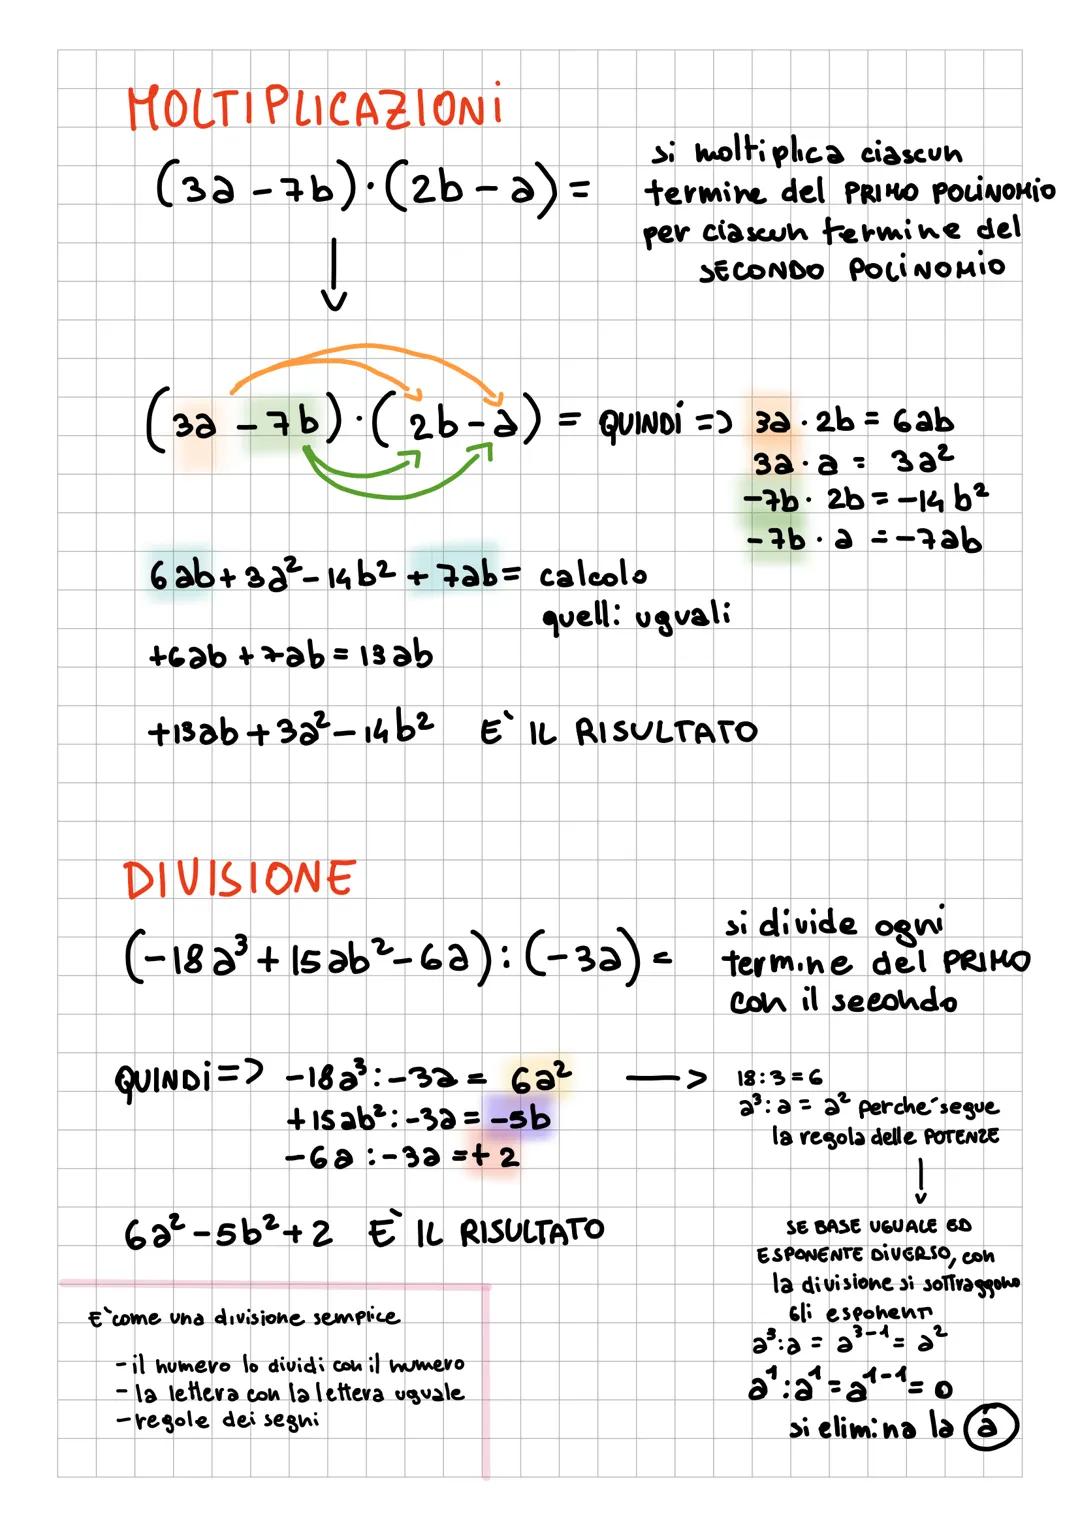 MOLTIPLICAZIONi
(3a - 7b)·(2b - a) =
si moltiplica ciascun
termine del PRIMO POLINOMiO
per ciascun termine del
SECONDO POLiNOMiO
(3a - 7b)·(2b - a) = QUINDi => 3a · 2b = 6ab
3a · a = 3a²
-7b · 2b = -14b²
-7b · a = -7ab
6ab + 3a² - 14b² + 7ab = calcolo
quelli uguali
+6ab + 7ab = 13ab
+13ab + 3a² - 14b² E` IL RISULTATO
DIVISIONE
(-18a³ + 15ab² - 6a) : (-3a) =
si divide ogni
termine del PRIMO
con il secondo
QUINDi => -18a³ : -3a = 6a² —> 18:3=6
+15ab² : -3a = -5b
-6a : -3a = + 2
a³:a = a² perche´ segue
la regola delle POTENZE
SE BASE UGUALE ED
ESPONENTE DiVERSO, con
la divisione si sottraggono
Gli esponenti
a³:a = a³⁻¹ = a²
a¹:a¹ = a¹⁻¹ = 0
si elimina la a
6a² - 5b² + 2 E` IL RISULTATO
E` come una divisione semplice
- il numero lo dividi con il numero
- la lettera con la lettera uguale
- regole dei segni